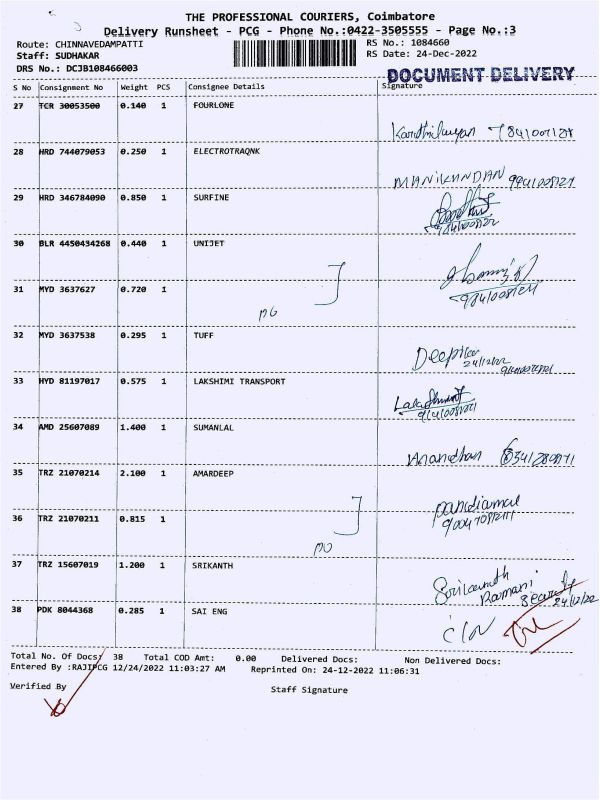 THE PROFESSIONAL COURIERS, Coimbatore
Delivery Runsheet - PCG - Phone No.:0422-3505555 - Page No.:3
Route: CHINNAVEDAMPATTI RS No.: 1084660
Staff: SUDHAKAR RS Date: 24-Dec-2022
DRS No.: DCJB108466003
DOCUMENT DELIVERY
S No Consignment No Weight PCS Consignee Details Signature
27 TCR 30053500 0.140 1 FOURLONE
28 HRD 744079053 0.250 1 ELECTROTRAQNK
MANIKANDAN
29 HRD 346784090 0.850 1 SURFINE
30 BLR 4450434268 0.440 1 UNIJET
31 MYD 3637627 0.720 1
32 MYD 3637538 0.295 1 TUFF
24/12/22
33 HYD 81197017 0.575 1 LAKSHIMI TRANSPORT
34 AMD 25607089 1.400 1 SUMANLAL
35 TRZ 21070214 2.100 1 AMARDEEP
36 TRZ 21070211 0.815 1
37 TRZ 15607019 1.200 1 SRIKANTH
Ramani
24/12/22
38 PDK 8044368 0.285 1 SAI ENG
Total No. Of Docs: 38 Total COD Amt: 0.00 Delivered Docs: Non Delivered Docs:
Entered By :RAJIPCG 12/24/2022 11:03:27 AM Reprinted On: 24-12-2022 11:06:31
Verified By Staff Signature